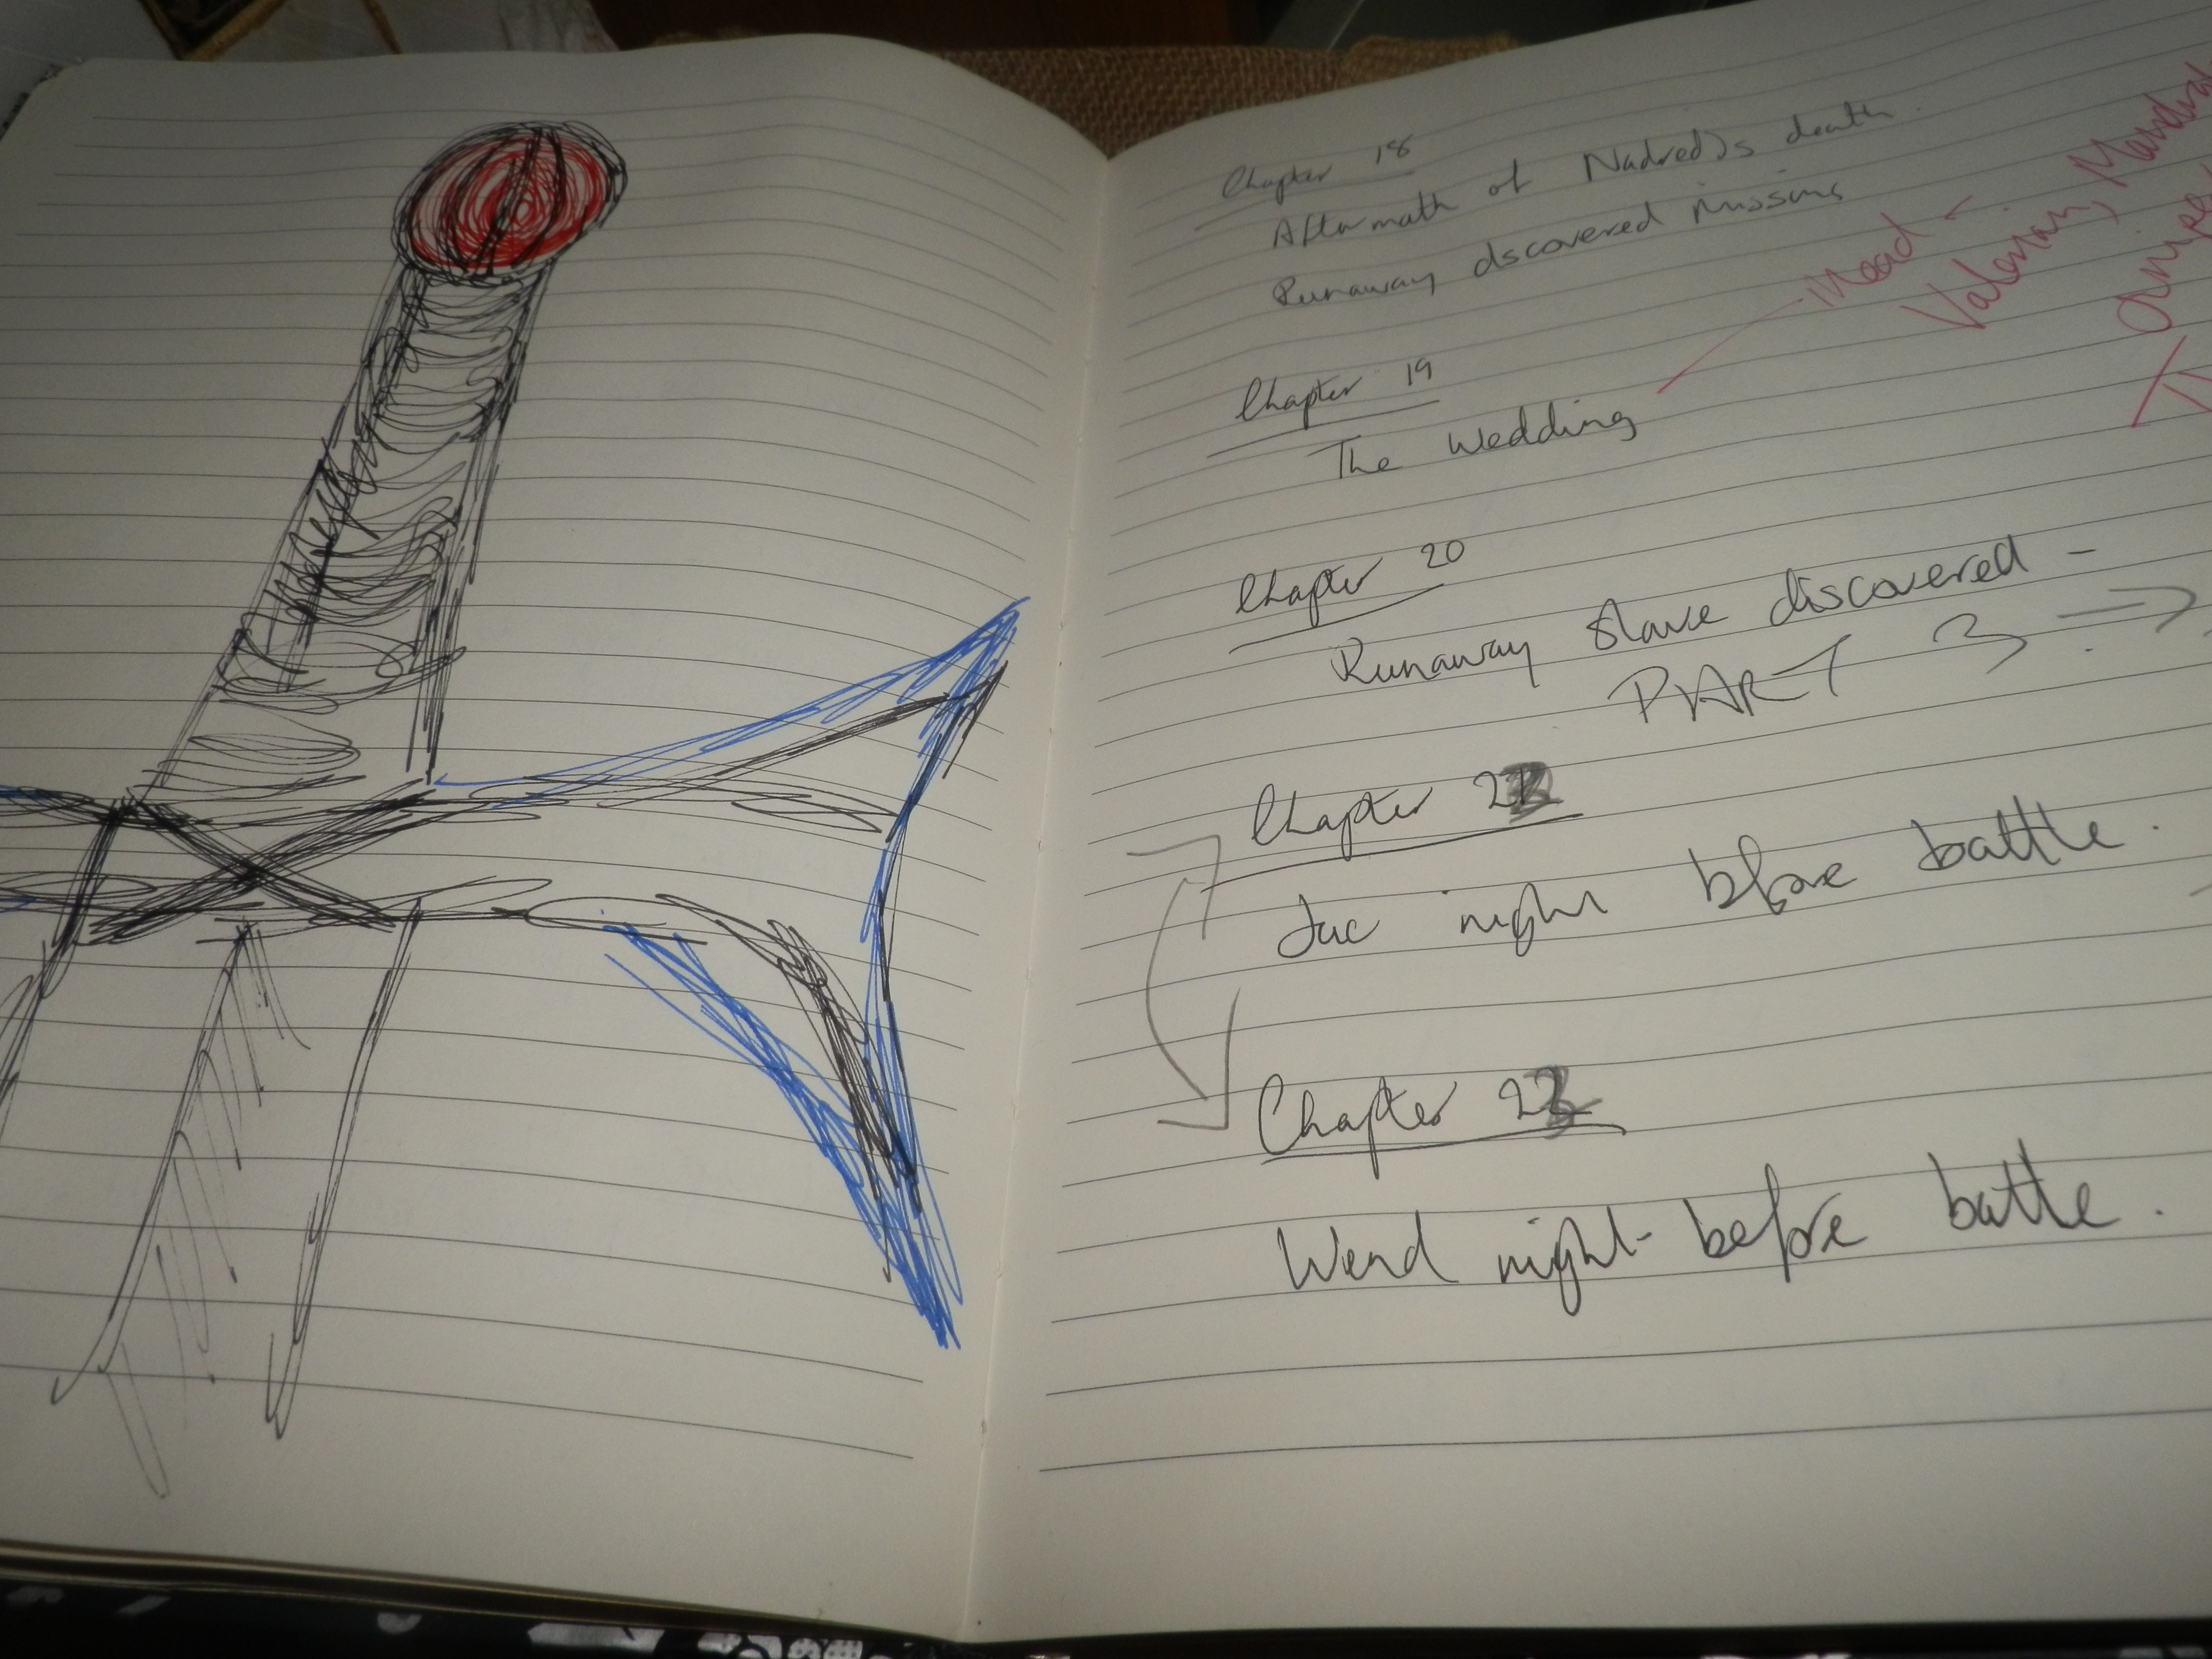 Chapter 18
Aftermath of Nadred's death.
Runaway discovered missing
Chapter 19
The Wedding
- Mead -
Valerian,
Chapter 20
Runaway slave discovered -
PART 3 ⇒
Chapter 2
Juc night before battle.
Chapter 2
Wend night before battle.